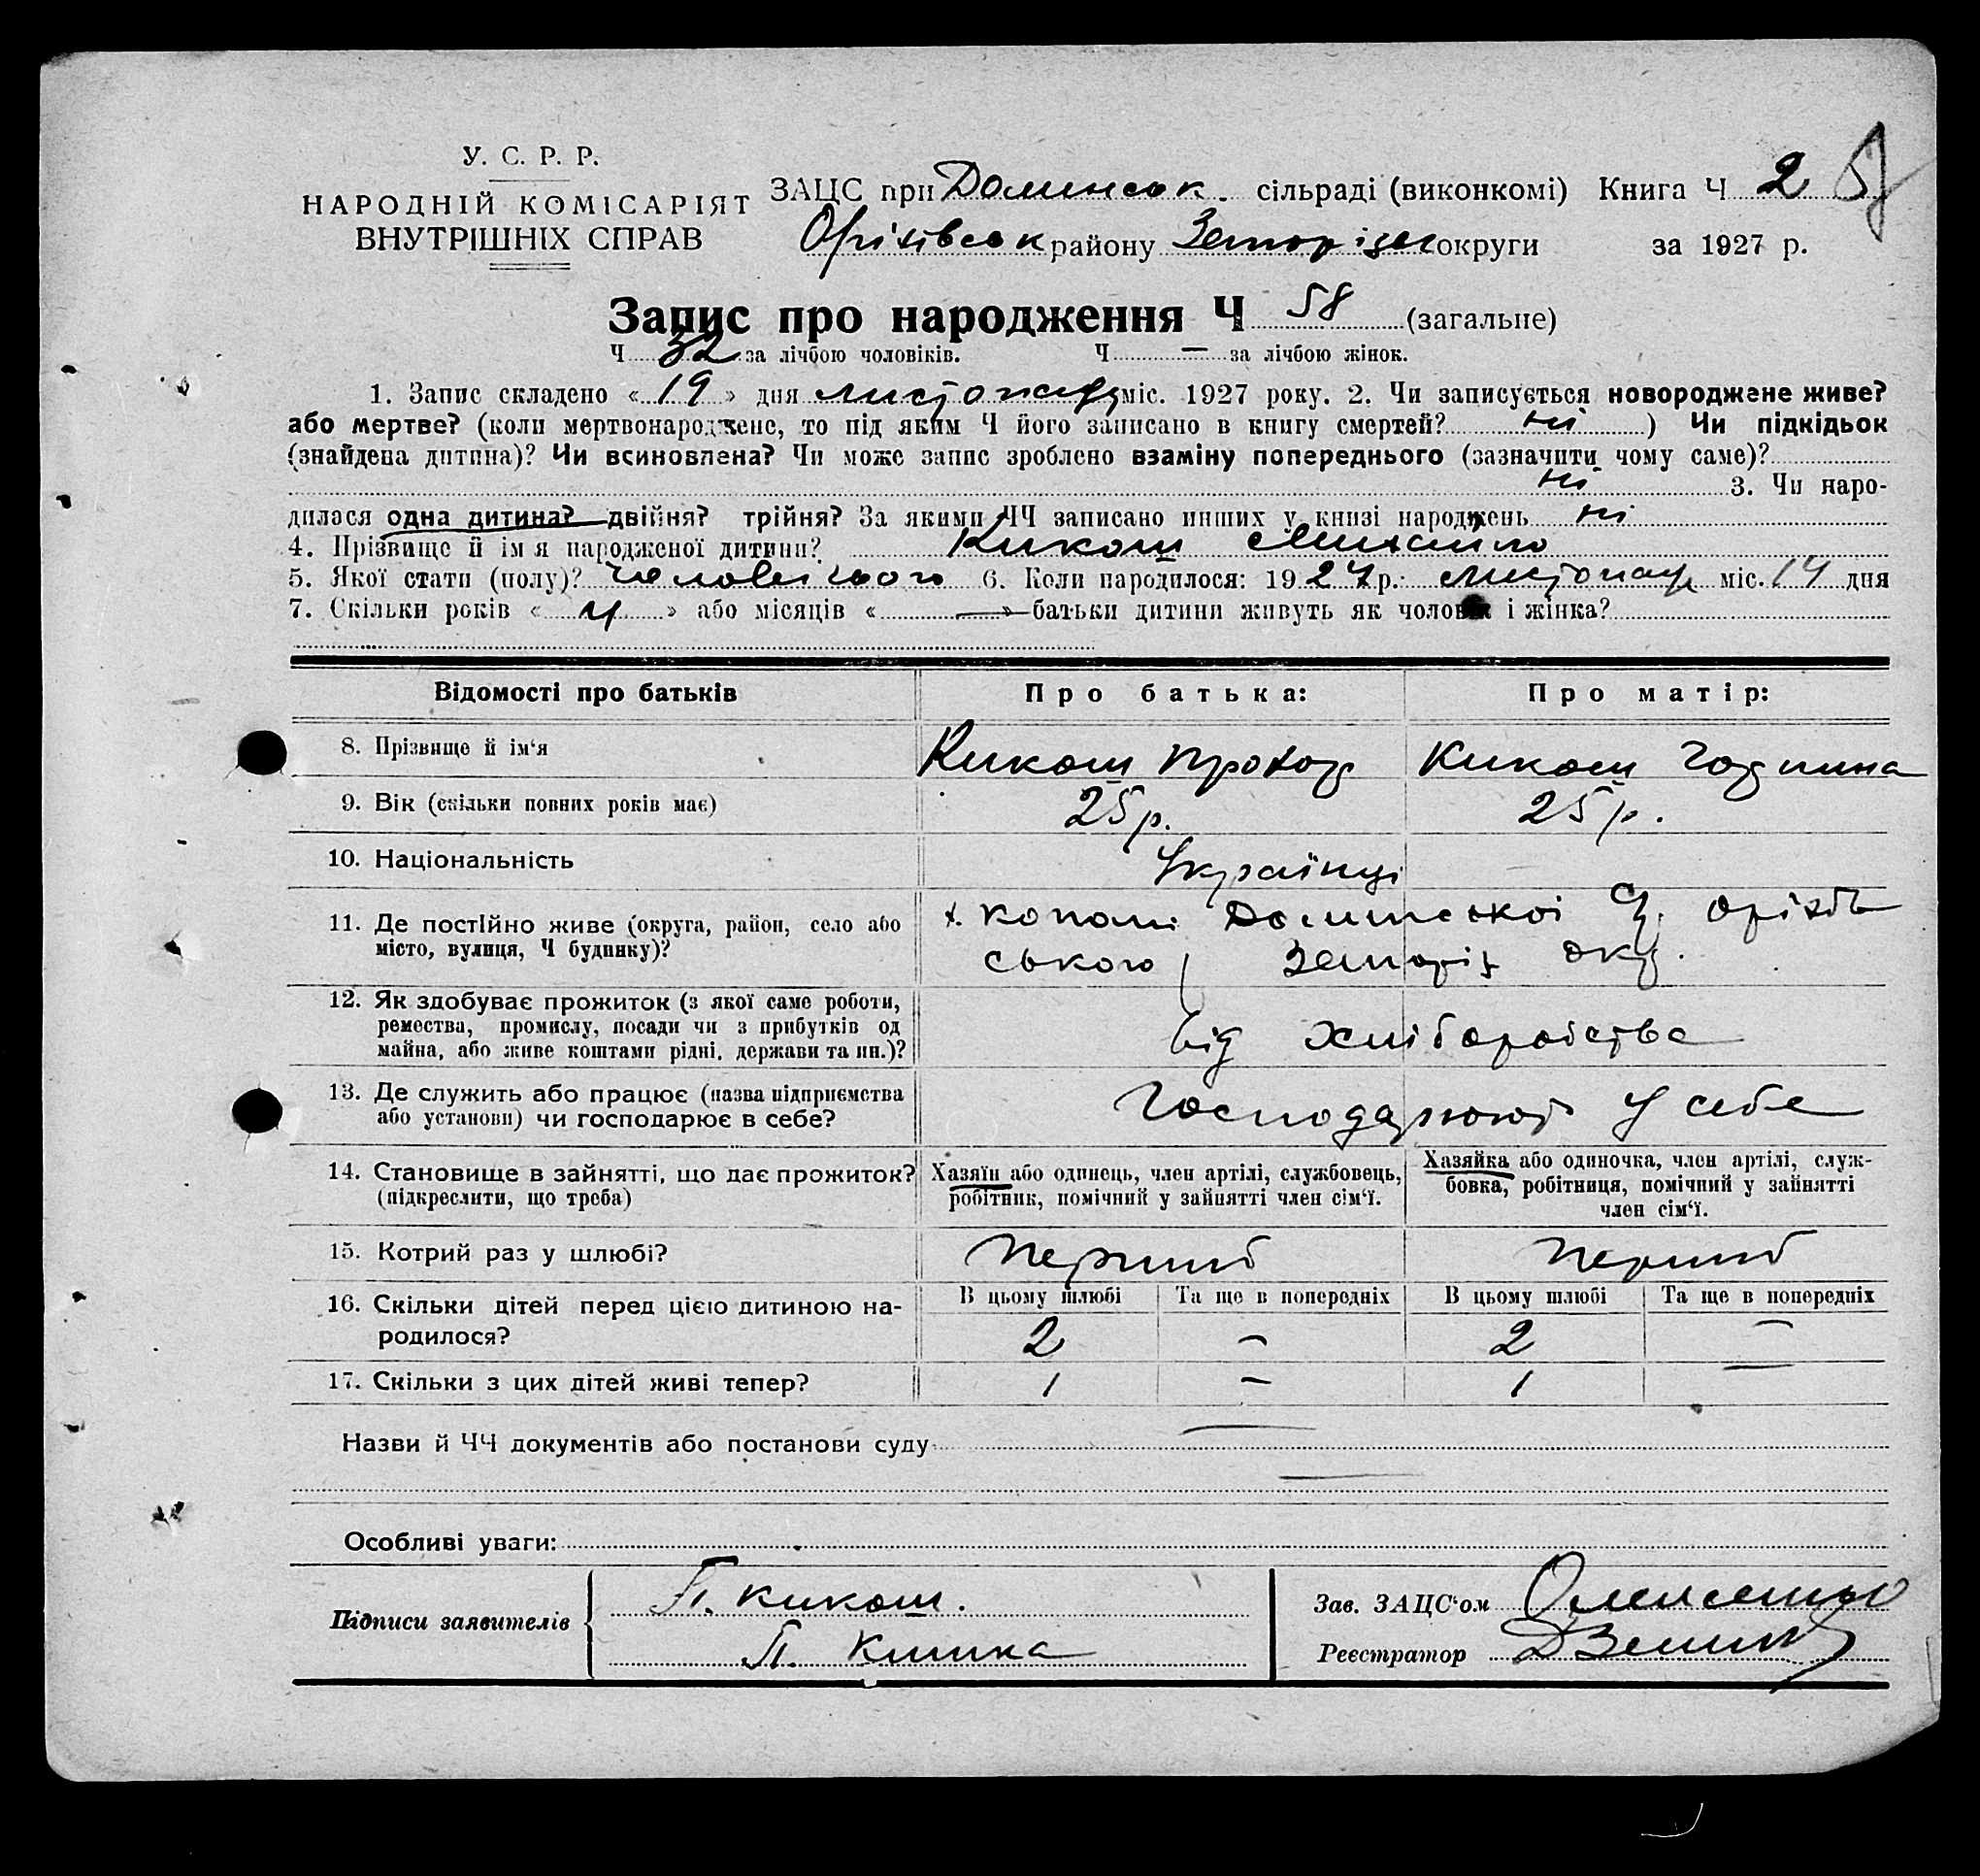 У. С. Р. Р.
НАРОДНІЙ КОМІСАРІЯТ
ВНУТРІШНІХ СПРАВ
ЗАЦС при Долинськ. сільраді (виконкомі) Книга Ч 2
Оріхівськ району Запоріз округи за 1927 р.
Запис про народження Ч 58 (загальне)
Ч 32 за лічбою чоловіків. Ч — за лічбою жінок.
1. Запис складено « 19 » дня листопаду міс. 1927 року. 2. Чи записується новороджене живе?
або мертве? (коли мертвонароджене, то під яким Ч його записано в книгу смертей? ні ) Чи підкідьок
(знайдена дитина)? Чи всиновлена? Чи може запис зроблено взаміну попереднього (зазначити чому саме)?
ні 3. Чи наро-
дилася одна дитина? двійня? трійня? За якими ЧЧ записано инших у книзі народжень ні
4. Прізвище й ім'я народженої дитини? Кикош Михайло
5. Якої стати (полу)? 6. Коли народилося: 1927 р. листопад міс. 14 дня
7. Скільки років « 4 » або місяців « — » батьки дитини живуть як чоловік і жінка?
Відомості про батьків
Про батька:
Про матір:
8. Прізвище й ім'я
Кикош Прохор
Кикош
9. Вік (скільки повних років має)
25 р.
25 р.
10. Національність
Українці
11. Де постійно живе (округа, район, село або
місто, вулиця, Ч будинку)?
х. Копані Долинської С/Р. Оріхів
ського Запоріз окр.
12. Як здобуває прожиток (з якої саме роботи,
ремества, промислу, посади чи з прибутків од
майна, або живе коштами рідні, держави та ин.)?
від хліборобства
13. Де служить або працює (назва підприємства
або установи) чи господарює в себе?
Господарюют у себе
14. Становище в зайнятті, що дає прожиток?
(підкреслити, що треба)
Хазяїн або одинець, член артілі, службовець,
робітник, помічний у зайнятті член сім'ї.
Хазяйка або одиночка, член артілі, служ-
бовка, робітниця, помічний у зайнятті
член сім'ї.
15. Котрий раз у шлюбі?
Перший
Перший
16. Скільки дітей перед цією дитиною на-
родилося?
В цьому шлюбі
Та ще в попередніх
В цьому шлюбі
Та ще в попередніх
2 — 2 —
17. Скільки з цих дітей живі тепер?
1 — 1 —
Назви й ЧЧ документів або постанови суду —
—
Особливі уваги:
Підписи заявителів
П. Кикош.
П.
Зав. ЗАЦС'ом
Реєстратор